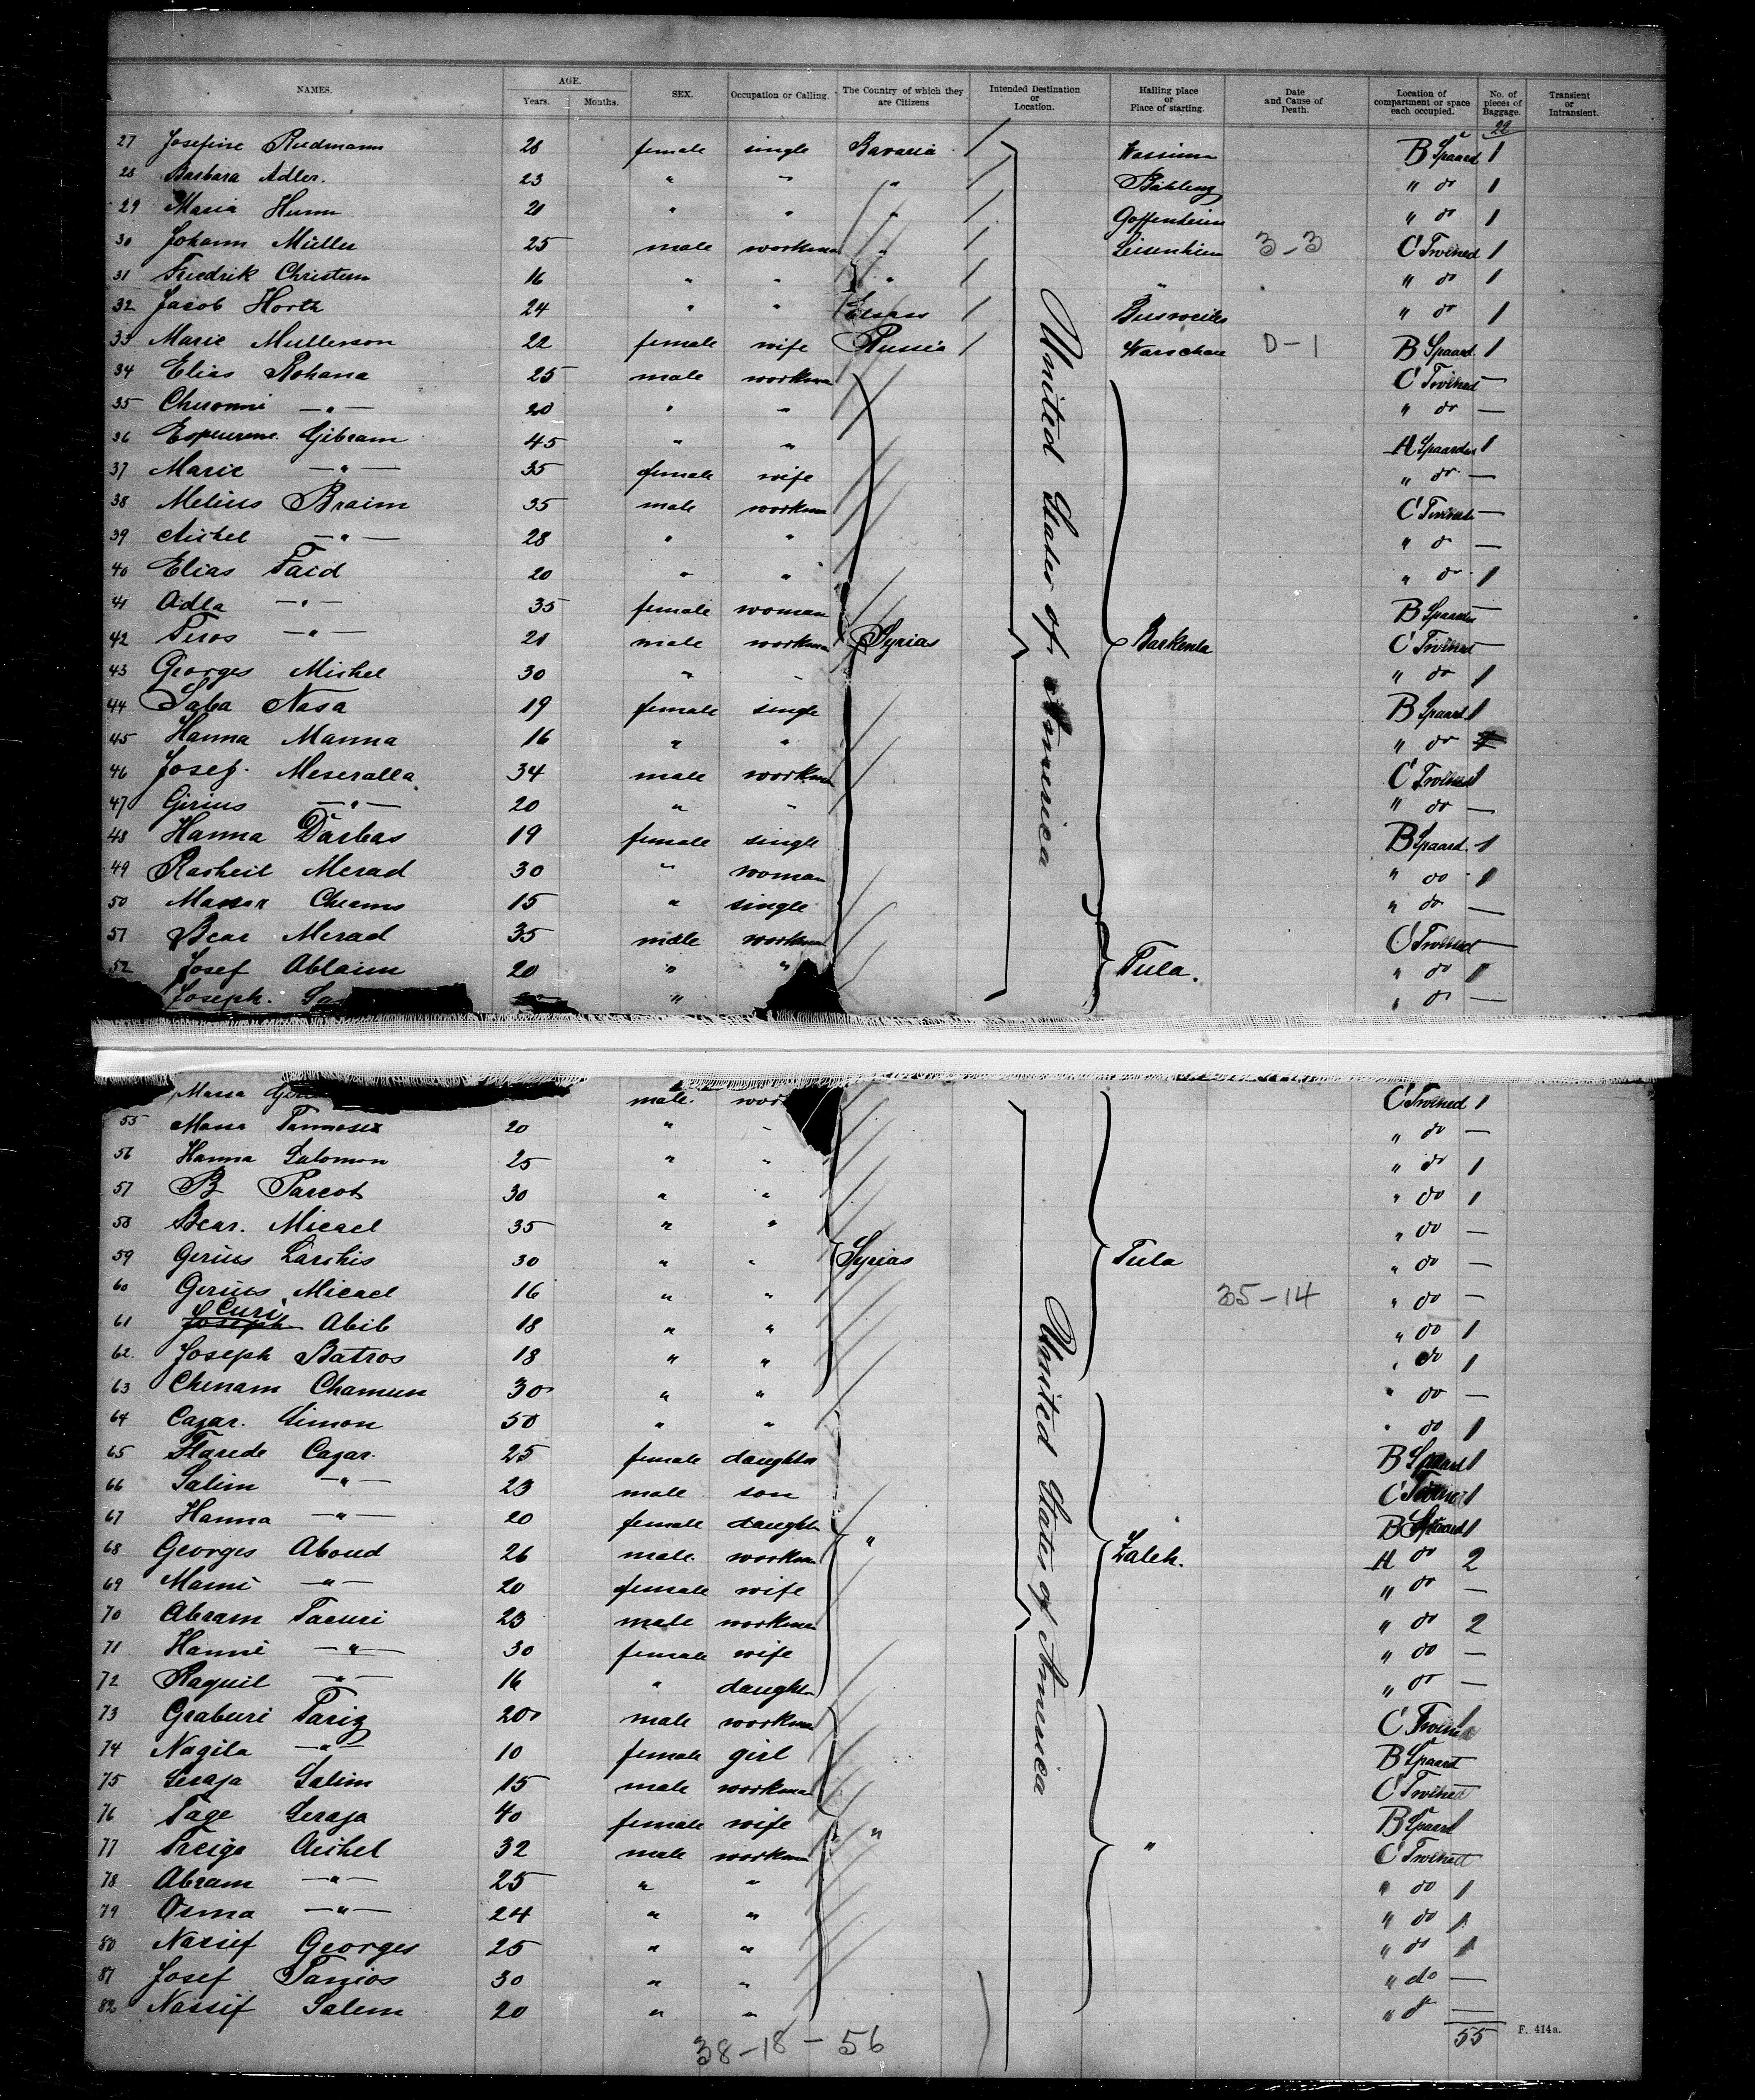 NAMES. AGE. SEX. Occupation or Calling. The Country of which they are Citizens Intended Destination or Location. Hailing place or Place of starting. Date and Cause of Death. Location of compartment or space each occupied. No. of pieces of Baggage. Transient or Intransient.
Years. Months.
22
27 Josefine Rudmann 28 female single Bavaria / B Spaard 1
28 Barbara Adler. 23 " " " / " do 1
29 Maria Humm 21 " " " / Goffenheim " do 1
30 Johann Müller 25 male workman " / 3-3 C Twined 1
31 Friedrik Christum 16 " " " / " " do 1
32 Jacob Horth 24 " " Elsass / Busweiler " do 1
33 Marie Mullerson 22 female wife Russia / Warschau 0-1 B Spaard. 1
34 Elias Rohana 25 male workman C Twined —
35 Cheronni — " — 20 " " " do —
36 Gibram 45 " " A Spaarden 1
37 Marie — " — 35 female wife " do —
38 Melius Braim 35 male workman C Twined —
39 Aichel — " — 28 " " " do —
40 Elias Faid 20 " " " do 1
41 Adla — " — 35 female woman B Spaard —
42 Feros — " — 21 male workman Syrias United States of America Barkenla C Twined —
43 Georges Michel 30 " " " do 1
44 Saba Nasa 19 female single B Spaard 1
45 Hanna Manna 16 " " " do
46 Josef. Meseralla 34 male workman C Twined 1
47 Girius — " — 20 " " " do —
48 Hanna Darbas 19 female single B Spaard. 1
49 Rasheil Merad 30 " woman " do 1
50 Massar Cheams 15 " single " do —
51 Bear Merad 35 male workman C Twined —
52 Josef Ablaim 20 " " Tula. " do 1
Joseph. " " do —
Massa male. C Twined 1
55 Massa Tannosex 20 " " " do —
56 Hanna Salomon 25 " " " do 1
57 B Parcot 30 " " " do 1
58 Bear. Micael 35 " " " do —
59 Gerius Larchis 30 " " Syrias Tula " do —
60 Gerius Micael 16 " " 35-14 " do —
61 Curi Abib 18 " " " do 1
62. Joseph Batros 18 " " " do 1
63 Chenam Chamun 30 " " " do —
64 Cazar. Simon 50 " " " do 1
65 Flarede Cazar. 25 female daughter B Spaard 1
66 Salim — " — 23 male son C Twined 1
67 Hanna — " — 20 female daughter B Spaard 1
68 Georges Aboud 26 male. workman " United States of America Zaleh. A do 2
69 Mami — " — 20 female wife " do —
70 Abram Tacuri 23 male workman " do 2
71 Hanni — " — 30 female wife " do —
72 Raquil — " — 16 " daughter " do —
73 Graburi Pariz 20 male workman C Twined 1
74 Nagila — " — 10 female girl B Spaard
75 Seraja Salim 15 male workman C Twined
76 Tage Seraja 40 female wife " B Spaard 1
77 Freiga Aichel 32 male workman " C Twined
78 Abram — " — 25 " " " do 1
79 Osma — " — 24 " " " do 1
80 Nassif Georges 25 " " " do 1
81 Josef Tanios 30 " " " do —
82 Nassif Salem 20 " " " do —
38-18-56 55 F. 414a.